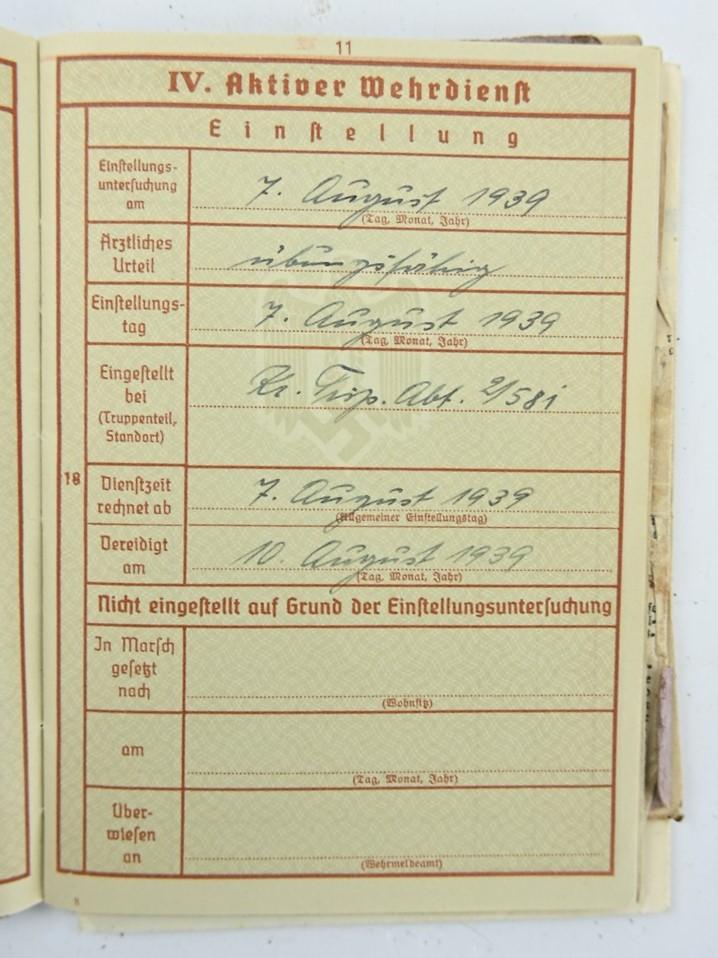 11
IV. Aktiver Wehrdienst
Einstellung
Einstellungs-
untersuchung
am
7. August 1939
(Tag, Monat, Jahr)
Ärztliches
Urteil
übungsfähig
Einstellungs-
tag
7. August 1939
(Tag, Monat, Jahr)
Eingestellt
bei
(Truppenteil,
Standort)
Kr. Trsp. Abt. 2/581
18
Dienstzeit
rechnet ab
7. August 1939
(Allgemeiner Einstellungstag)
Vereidigt
am
10. August 1939
(Tag, Monat, Jahr)
Nicht eingestellt auf Grund der Einstellungsuntersuchung
In Marsch
gesetzt
nach
(Wohnsitz)
am
(Tag, Monat, Jahr)
Über-
wiesen
an
(Wehrmeldeamt)